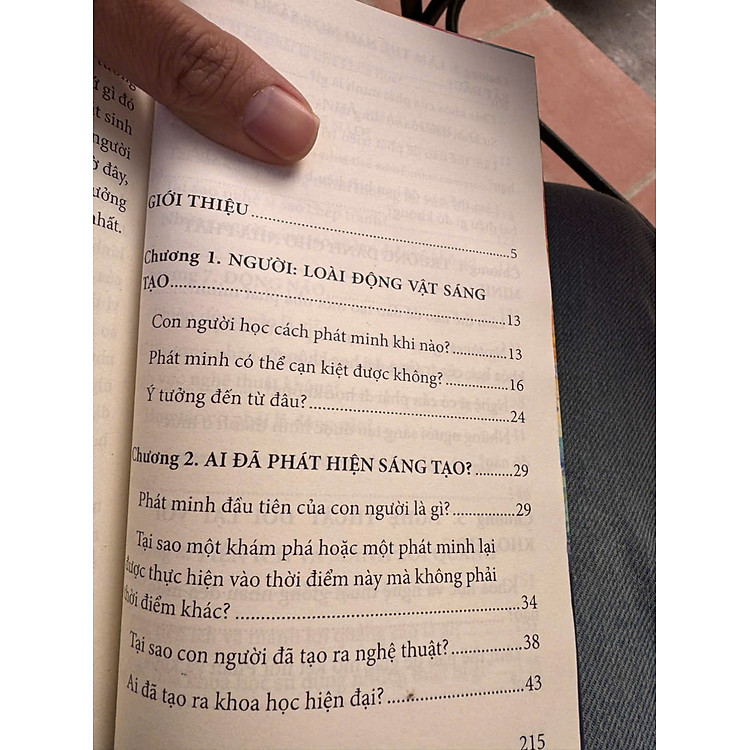 ưởng
ứ gì đó
t sinh
người
ờ đây,
ưởng
nhất.
GIỚI THIỆU..........5
Chương 1. NGƯỜI: LOÀI ĐỘNG VẬT SÁNG
TẠO..........13
Con người học cách phát minh khi nào?..........13
Phát minh có thể cạn kiệt được không?..........16
Ý tưởng đến từ đâu?..........24
Chương 2. AI ĐÃ PHÁT HIỆN SÁNG TẠO?..........29
Phát minh đầu tiên của con người là gì?..........29
Tại sao một khám phá hoặc một phát minh lại
được thực hiện vào thời điểm này mà không phải
thời điểm khác?..........34
Tại sao con người đã tạo ra nghệ thuật?..........38
Ai đã tạo ra khoa học hiện đại?..........43
215